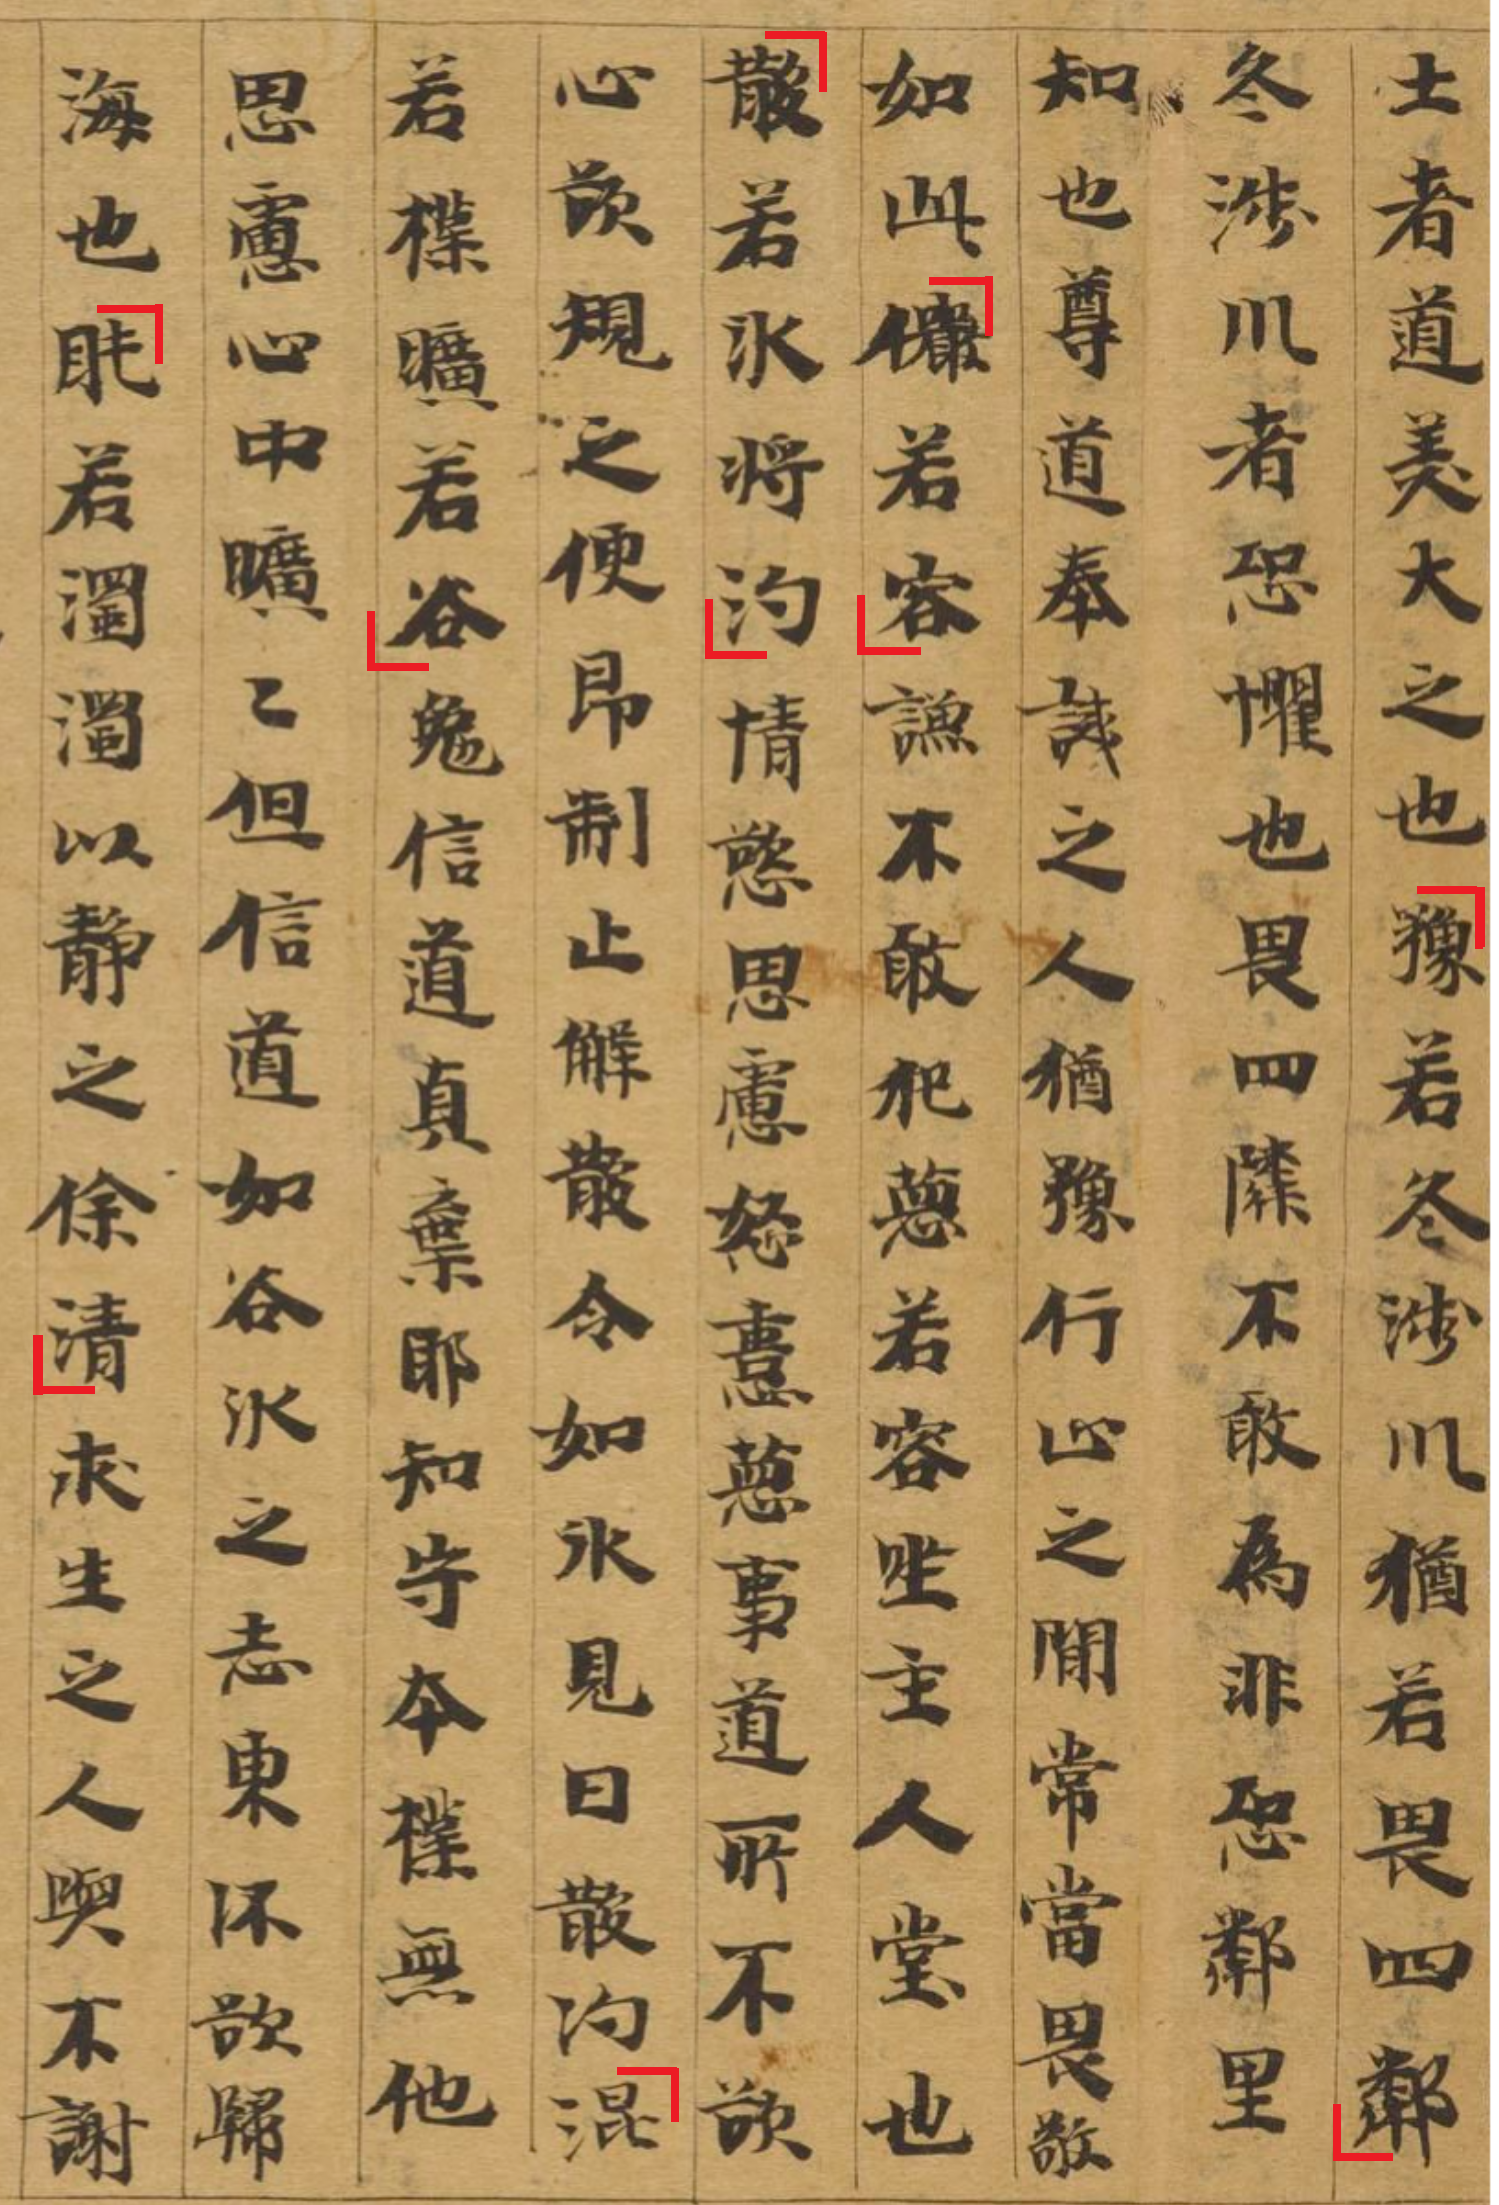 士者道美大之也豫若冬涉川猶若畏四鄰
冬涉川者恐懼也畏四隣不敢為非恐鄰里
知也尊道奉誡之人猶豫行止之間常當畏敬
如此儼若容謙不敢犯惡若容坐主人堂也
散若氷将汋情慾思慮怒憙惡事道所不欲
心欲規之便即制止解散令如氷見日散汋混
若樸曠若谷兔信道真棄耶知守本樸無他
思慮心中曠〻但信道如谷氷之志東流欲歸
海也肫若濁濁以静之徐清求生之人與不謝